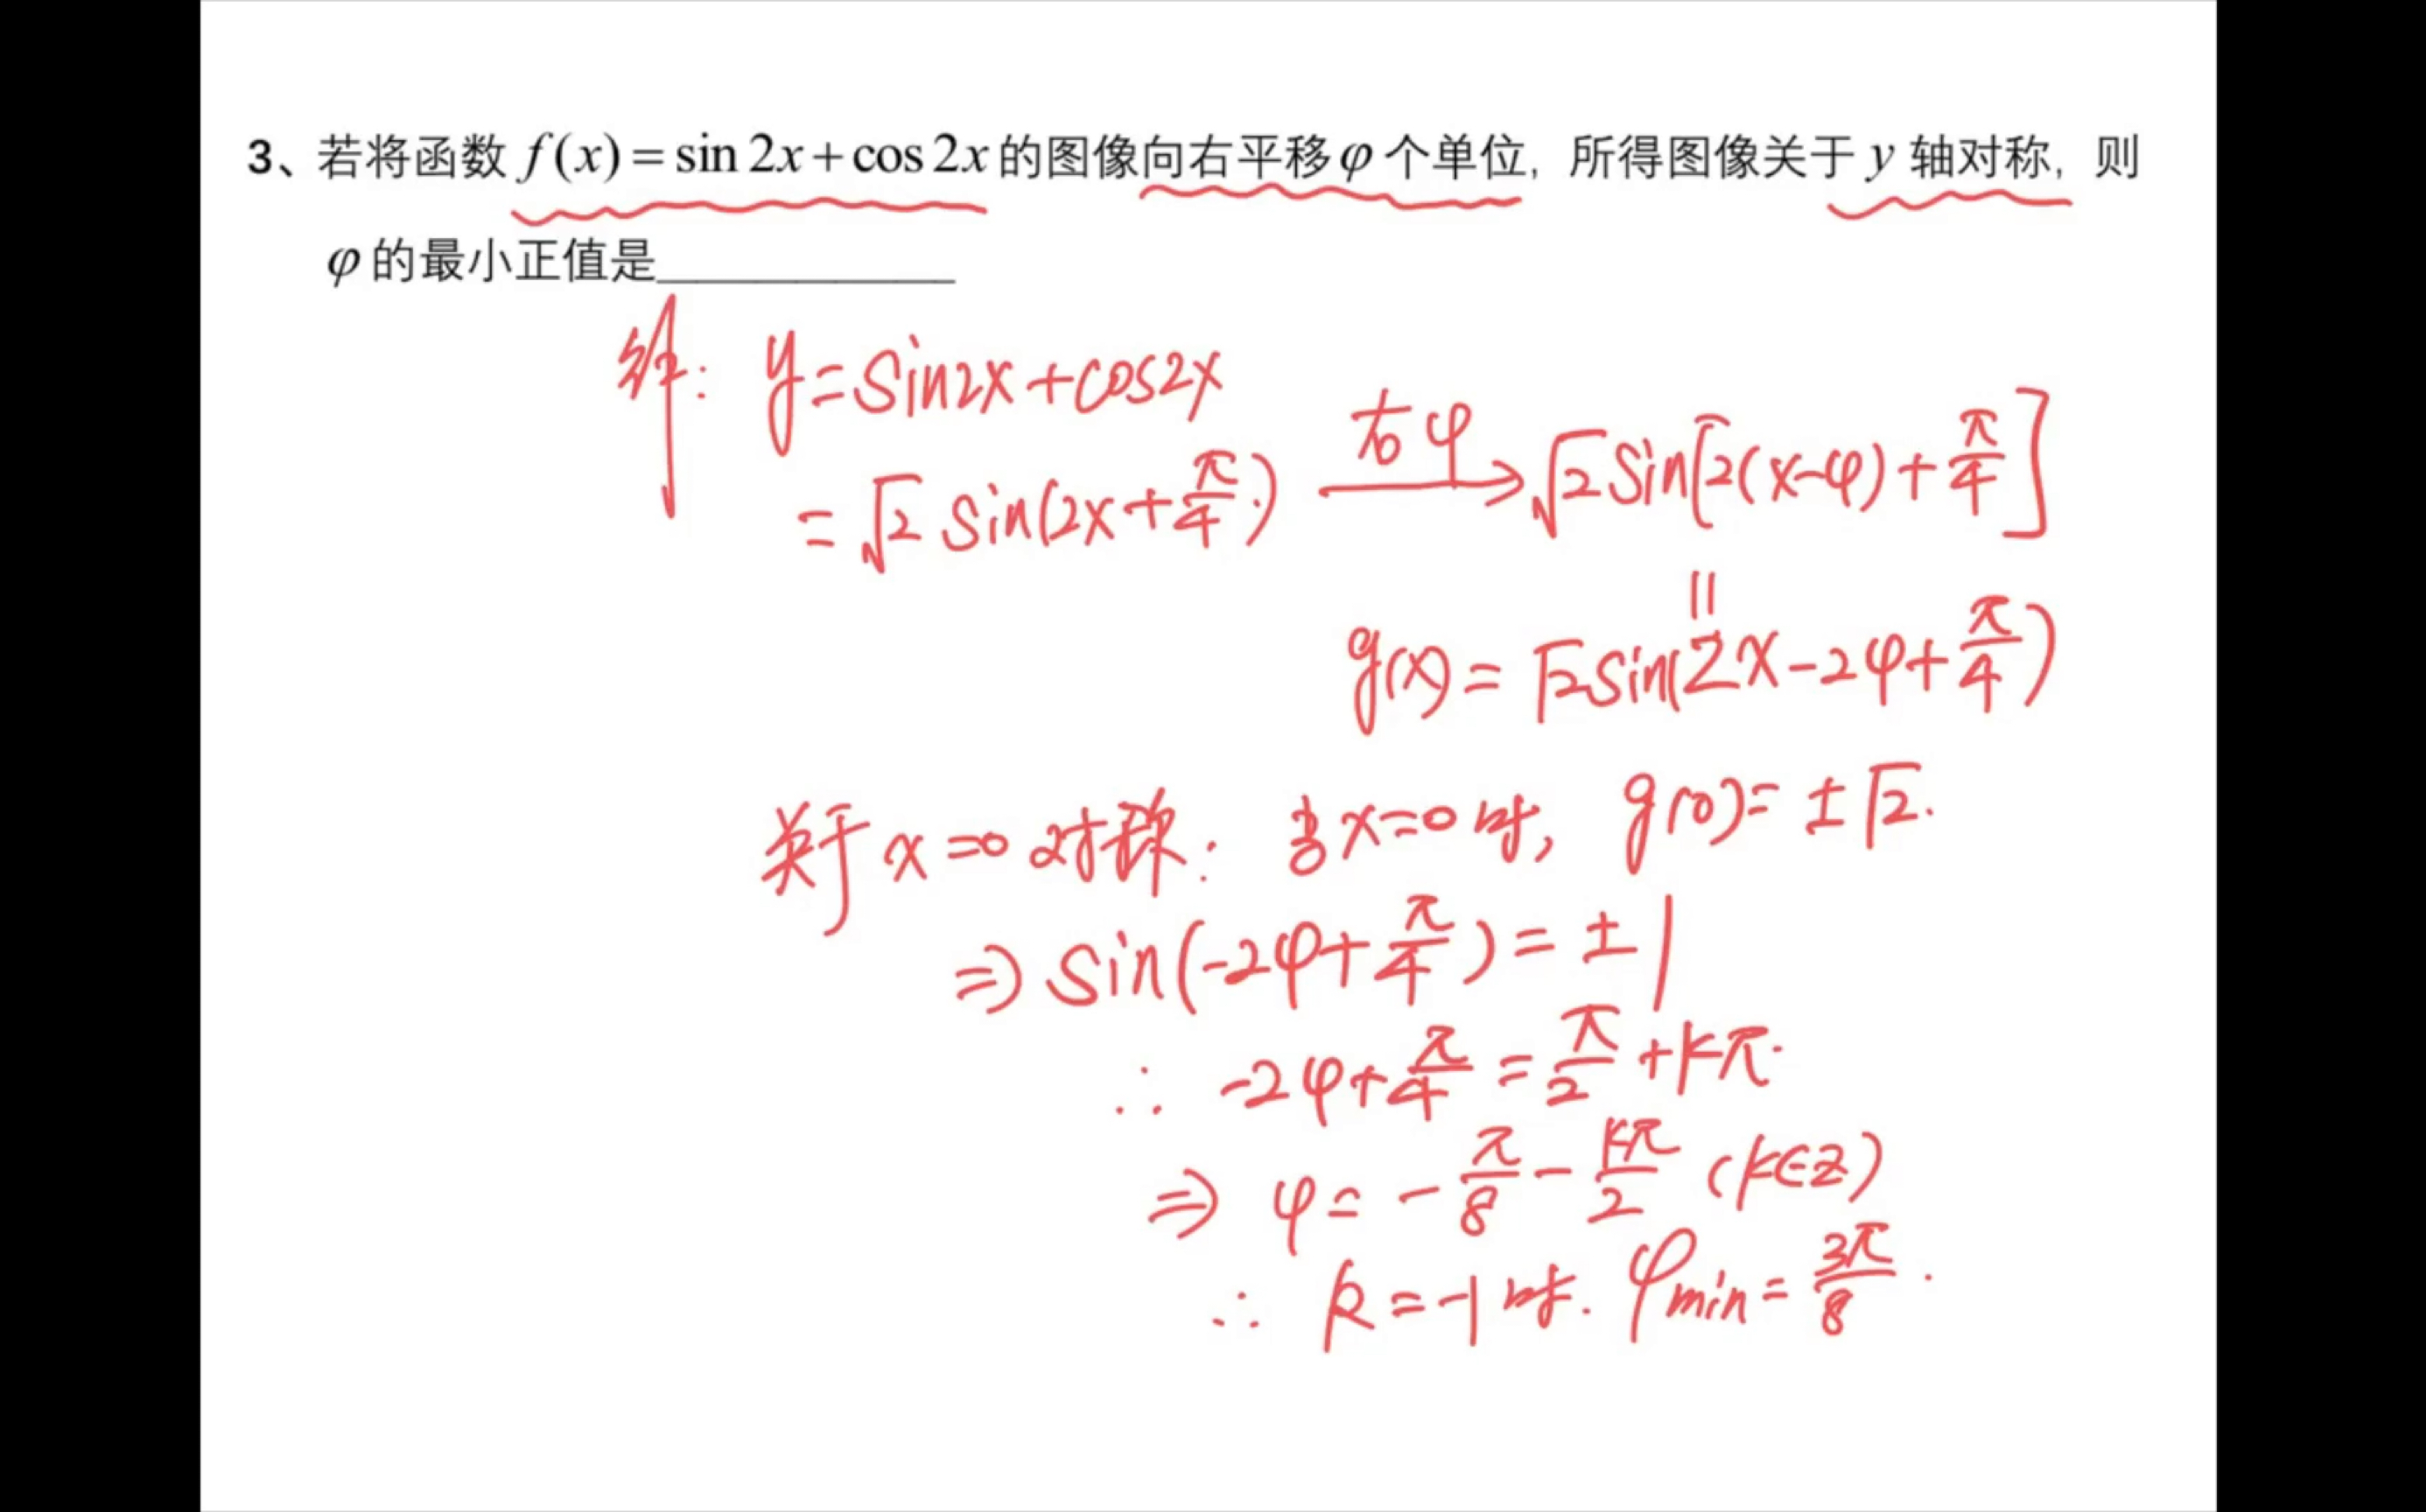 3、若将函数 f(x)=sin 2x+cos 2x 的图像向右平移φ 个单位，所得图像关于 y 轴对称，则
φ 的最小正值是____________
解: y=sin2x+cos2x
=√2 sin(2x+π/4) 右φ→ √2 sin[2(x-φ)+π/4]
||
g(x)=√2 sin(2x-2φ+π/4)
关于 x=0 对称: 当x=0时, g(0)=±√2.
⇒ sin(-2φ+π/4)=±1
∴ -2φ+π/4=π/2+kπ.
⇒ φ=-π/8-kπ/2 (k∈Z)
∴ k=-1时. φmin=3π/8.